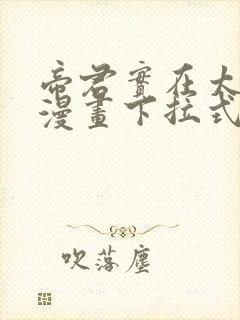 帝君實在太
漫畫下拉式
吹落塵